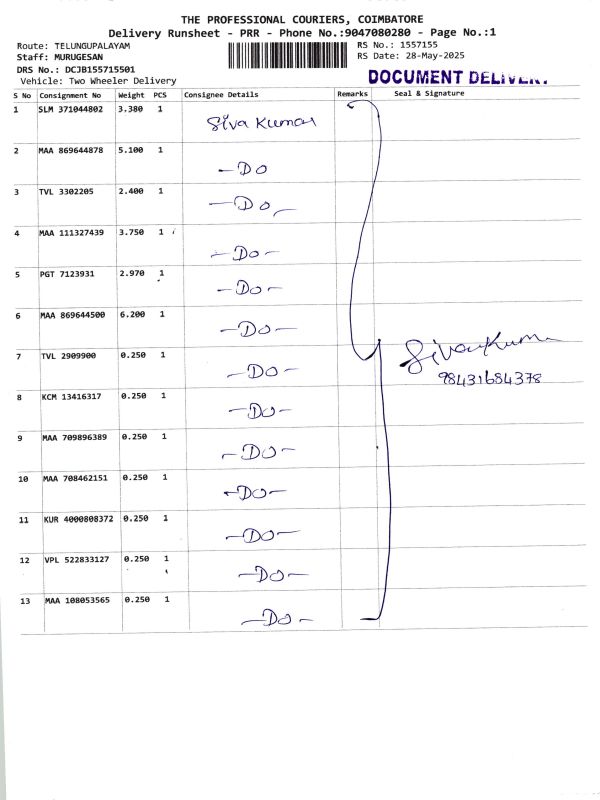 THE PROFESSIONAL COURIERS, COIMBATORE
Delivery Runsheet - PRR - Phone No.:9047080280 - Page No.:1
Route: TELUNGUPALAYAM
Staff: MURUGESAN
DRS No.: DCJB155715501
Vehicle: Two Wheeler Delivery
RS No.: 1557155
RS Date: 28-May-2025
DOCUMENT DELIVERY
S No Consignment No Weight PCS Consignee Details Remarks Seal & Signature
1 SLM 371044802 3.380 1 Siva Kumar
2 MAA 869644878 5.100 1 -DO
3 TVL 3302205 2.400 1 -DO-
4 MAA 111327439 3.750 1 -DO-
5 PGT 7123931 2.970 1 -DO-
6 MAA 869644500 6.200 1 -DO-
7 TVL 2909900 0.250 1 -DO-
Siva Kumar
98431684378
8 KCM 13416317 0.250 1 -DO-
9 MAA 709896389 0.250 1 -DO-
10 MAA 708462151 0.250 1 -DO-
11 KUR 4000808372 0.250 1 -DO-
12 VPL 522833127 0.250 1 -DO-
13 MAA 108053565 0.250 1 -DO-